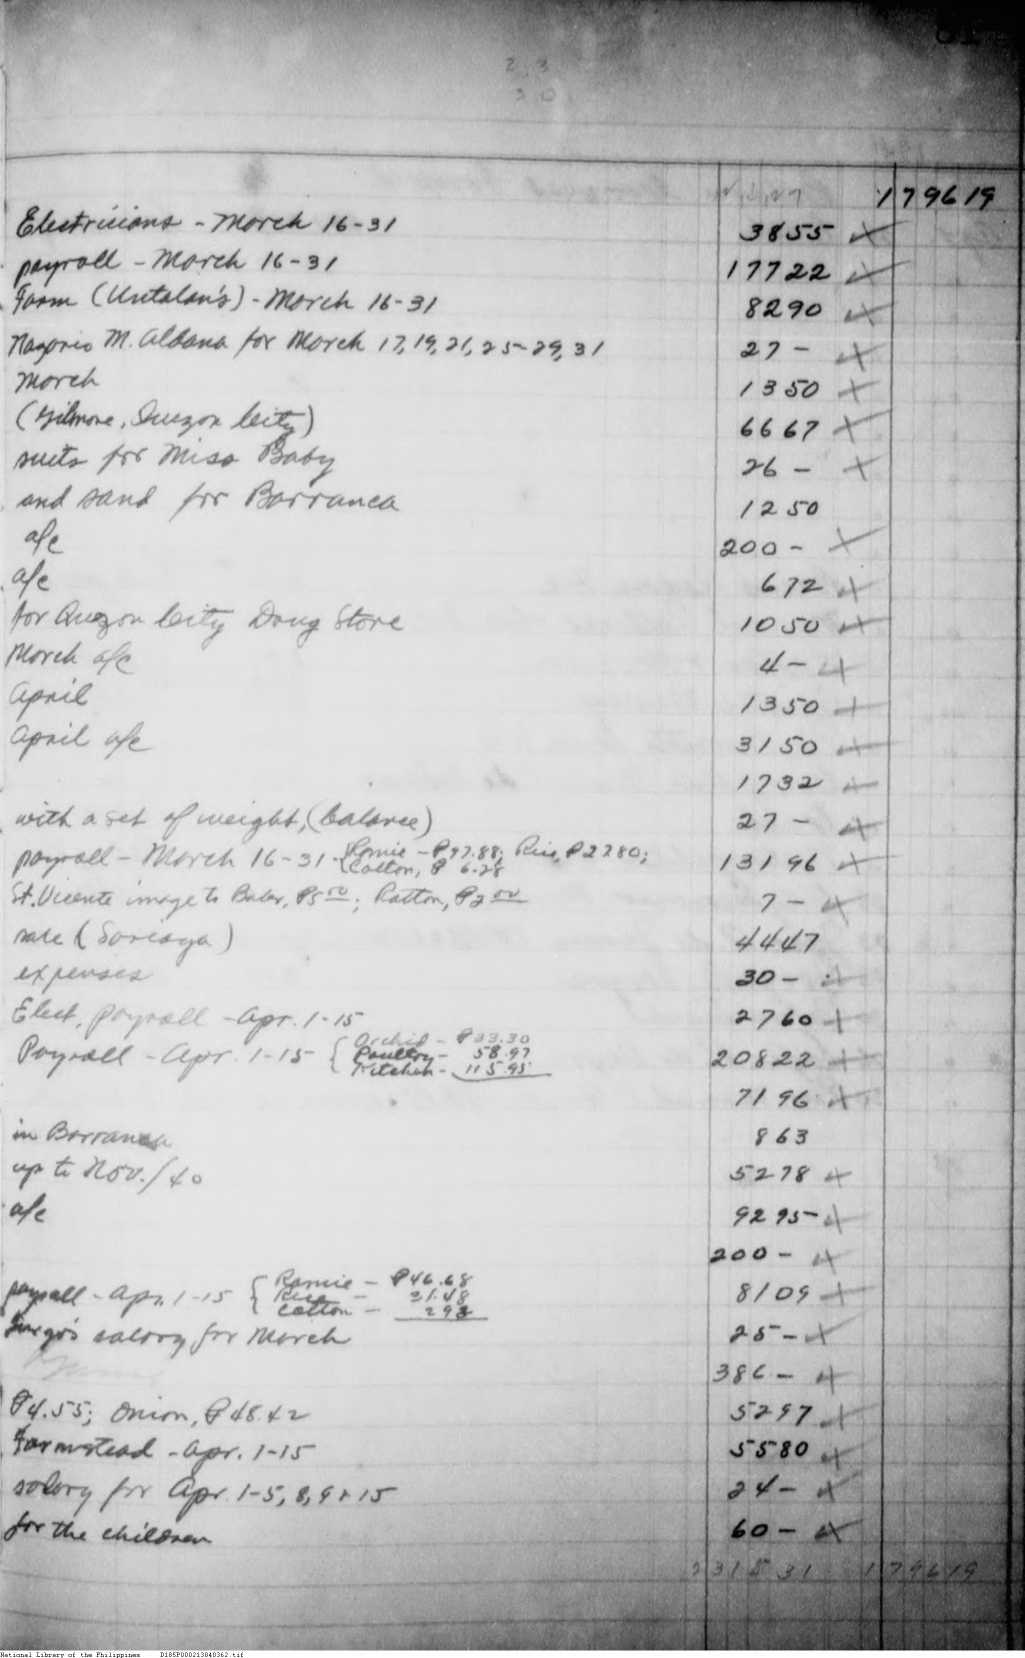 23
30
179619
Electricians - March 16-31 3855
payroll - March 16-31 17722
Farm (Untalan's) - March 16-31 8290
Nazario M. Aldana for March 17, 19, 21, 25-29, 31 27 -
March 1350
(Gilmore, Quezon City) 6667
suits for Miss Baby 26 -
and sand for Barranca 1250
a/c 200 -
a/c 672
for Quezon City Drug Store 1050
March a/c 4 -
April 1350
April a/c 3150
1732
with a set of weight, (balance) 27 -
payroll - March 16-31 { Ramie - ₱97.88; Rice, ₱27.80;
Cotton, ₱ 6.28 13196
St. Vicente image to Baler, ₱5 00; Rattan, ₱2 00 7 -
(Soriaga) 4447
expenses 30 -
Elect. payroll - Apr. 1-15 2760
Payroll - Apr. 1-15 { Orchid - ₱33.30
Poultry - 58.97
Kitchen - 115.95 20822
7196
in Barranca 863
up to Nov./40 5278
a/c 9295 -
200 -
payroll - Apr. 1-15 { Ramie - ₱46.68
Rice - 31.48
Cotton - 293 8109
salary for March 25 -
386 -
₱4.55; Onion, ₱48.42 5297
Farmstead - Apr. 1-15 5580
salary for Apr. 1-5, 8, 9 + 15 24 -
for the children 60 -
231531 179619
National Library of the Philippines D185P000213840362.tif